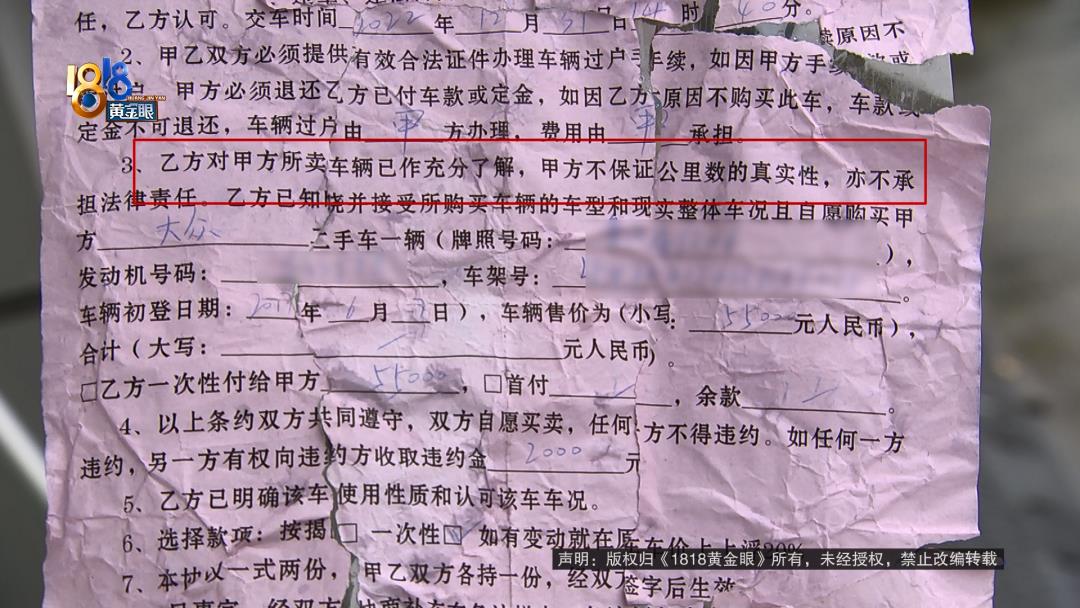 任,乙方认可。交车时间2022年12月31日14时40分。
续原因不
2、甲乙双方必须提供有效合法证件办理车辆过户手续,如因甲方手
1818
HUANG JIN YAN
黄金眼
甲方必须退还乙方已付车款或定金,如因乙方原因不购买此车,车款或
定金不可退还,车辆过户由甲方办理,费用由甲承担。
3、乙方对甲方所卖车辆已作充分了解,甲方不保证公里数的真实性,亦不承
担法律责任。乙方已知晓并接受所购买车辆的车型和现实整体车况且自愿购买甲
方大众二手车一辆(牌照号码:),
发动机号码:,车架号:。
车辆初登日期:2017年6月日),车辆售价为(小写:55000元人民币),
合计(大写:元人民币)。
□乙方一次性付给甲方55000,□首付,余款。
4、以上条约双方共同遵守,双方自愿买卖,任何一方不得违约。如任何一方
违约,另一方有权向违约方收取违约金2000元
5、乙方已明确该车使用性质和认可该车车况。
6、选择款项:按揭□ 一次性☑ 如有变动就在原车价上上浮20%
7、本协议一式两份,甲乙双方各持一份,经双方签字后生效
声明:版权归《1818黄金眼》所有,未经授权,禁止改编转载